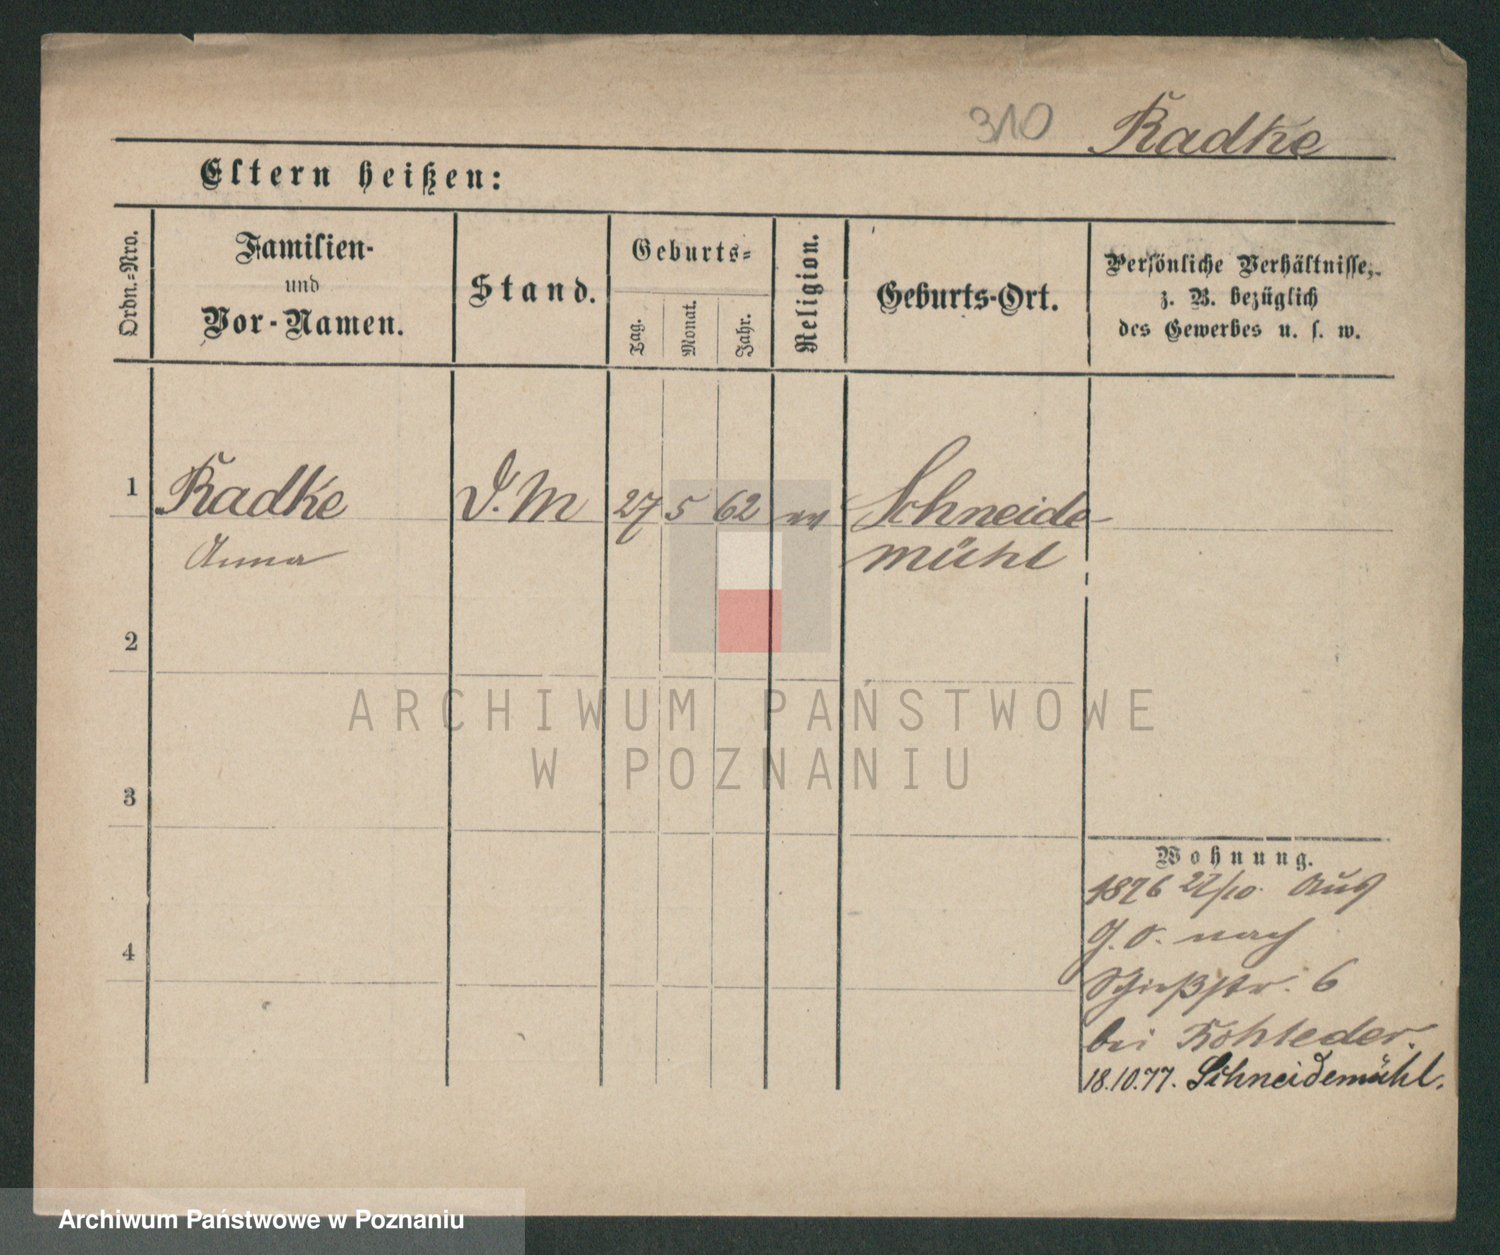 310 Radke
Eltern heißen:
Ordn.-Nro.
Familien-
und
Vor-Namen.
Stand.
Geburts-
Tag.
Monat.
Jahr.
Religion.
Geburts-Ort.
Persönliche Verhältnisse,
z. B. bezüglich
des Gewerbes u. s. w.
1 Radke D. M 27 5 62 ev Schneide
Anna mühl
2
ARCHIWUM PAŃSTWOWE
W POZNANIU
3
Wohnung.
1876 27/10. Aus
G. O. nach
4
Schießstr. 6
bei Rohleder.
18.10.77. Schneidemühl.
Archiwum Państwowe w Poznaniu